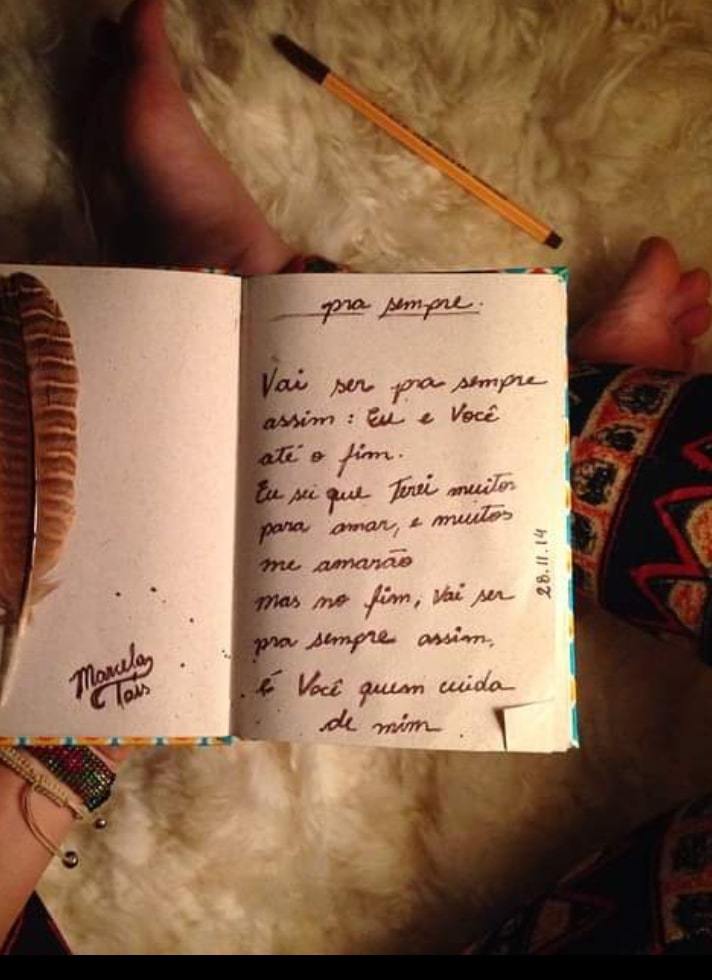 Marcela
Tais
pra sempre.
Vai ser pra sempre
assim: Eu e Você
até o fim.
Eu sei que Terei muitos
para amar, e muitos
me amarão
mas no fim, Vai ser
pra sempre assim.
é Você quem cuida
de mim.
28.11.14